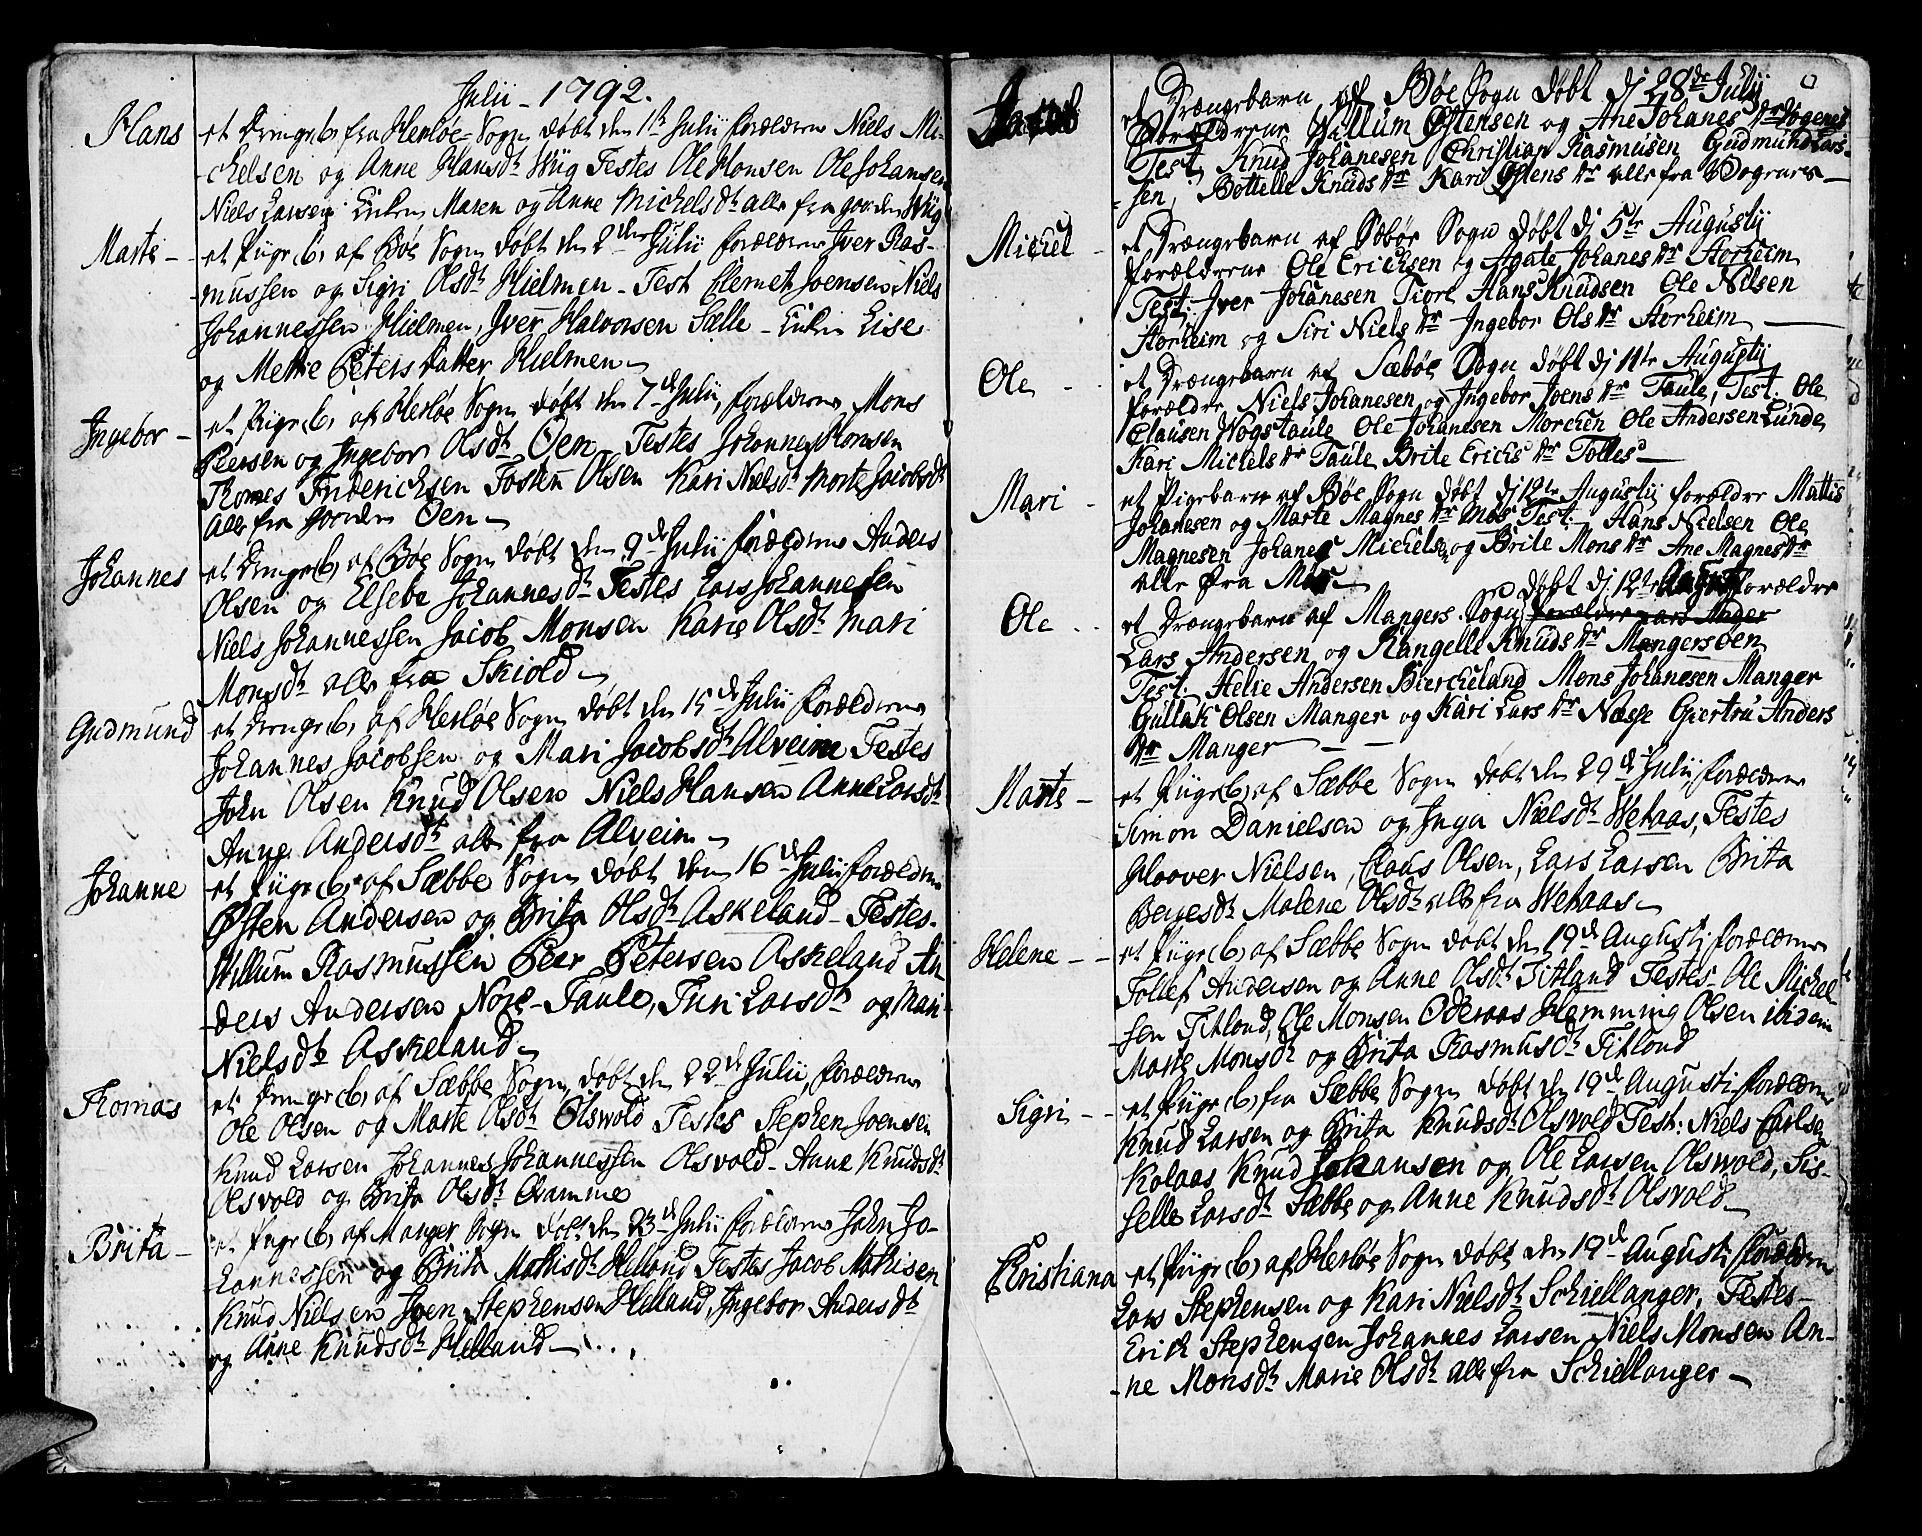 Julii - 1792.
Hans
et Drenge(b) fra Herløe-Sogn døbt den 1st Julii forældrene Niels Mi-
chelsen og Anne Hansdt Wiig Testes Ole Hansen Ole Johansen
Niels Larsen Enken Maren og Anne Michelsdt alle fra gaarden Wiig
Marte -
et Pige(b) af Bøe Sogn døbt den 2den Julii forældrene Iver Ras-
mussen og Sigri Olsdt Hielmen - Test Clemet Joensen Niels
Johannessen Hielmen, Iver Halvorsen Sælle - Enken Lise
og Mette Peters Datter Hielmen
Ingebor -
et Pige(b) af Herløe Sogn døbt den 7de Julii forældrene Mons
Peersen og Ingebor Olsdt Øen Testes Johannes Monsen
Thomes Friderichsen Tosten Olsen Kari Nielsdt Morte Jacobsdt
alle fra Gaarden Øen
Johannes
et Drenge(b) af Bøe Sogn døbt den 9de Julii forældrene Anders
Olsen og Elsebe Johannesdt Testes Lars Johannesen
Niels Johannessen Jacob Monsen Karie Olsdt Mari
Monsdt alle fra Skiold
Gudmund
et Drenge(b) af Herløe Sogn døbt den 15de Julii forældrene
Johannes Jacobsen og Mari Jacobsdt Alveim Testes
John Olsen Knud Olsen Niels Hansen Anne Larsdt
Anne Andersdt alle fra Alveim
Johanne
et Pige(b) af Sæbbe Sogn døbt den 16de Julii forældrene
Østen Andersen og Brita Olsdt Askeland - Testes
Willum Rasmussen Peer Petersen Askeland An-
ders Andersen Nore-Taule, Turi Larsdt og Mari
Nielsdt Askeland
Thomas
et Drenge(b) af Sæbbe Sogn døbt den 22de Julii, forældrene
Ole Olsen og Marte Olsdt Olswold Testes Stephen Joensen
Knud Larsen Johannes Johannessen Olsvold - Anne Knudsdt
Olsvold og Brita Olsdt Gramme
Brita -
et Pige(b) af Manger Sogn døbt den 23de Julii forældrene John Jo-
hannessen og Brita Mathisdt Helland Testes Jacob Mathisen
Knud Nielsen Joen Stephensen Helland, Ingebor Andersdt
og Anne Knudsdt Helland
Jacob
et Drængebarn af Bøe Sogn døbt dj 28de Julij
Forældrene Willum Østensen og Ane Johanes dr Vogenes
Test, Knud Johanesen Christian Rasmusen Gudmund Lars-
sen, Bottelle Knuds dr Kari Østens dr alle fra Vognæs
Michel -
et Drængebarn af Sæbøe Sogn døbt dj 5te Augustij
forældrene Ole Erichsen og Agate Johanes dr Storheim
Test: Iver Johanesen Tiore Hans Knudsen Ole Nilsen
Storheim og Siri Niels dr Ingebor Ols dr Storheim
Ole -
et Drængebarn af Sæbøe Sogn døbt dj 11te Augustij
forældre Niels Johanesen og Ingebor Joens dr Taule, Test. Ole
Clausen Wogstaule Ole Johanesen Morchen Ole Andersen Lunde
Kari Michels dr Taule Brite Erichs dr Tolles
Mari -
et Pigebarn af Bøe Sogn døbt dj 12te Augustij forældre Mattis
Johanesen og Marte Magnes dr Møs Test. Hans Nielsen Ole
Magnesen Johanes Michelsen og Brite Mons dr Ane Magnes dr
alle fra Møs
Ole -
døbt dj 12te August forældre
et Drængebarn af Mangers Sogn forældre Lars Ander
Lars Andersen og Rangelle Knuds dr Mangersøen
Test. Helie Andersen Biercheland Mons Johanesen Manger
Gullak Olsen Manger og Kari Lars dr Næsse Giertru Anders
dr Manger
Marte -
et Pige(b) af Sæbbe Sogn døbt den 29de Julii forældrene
Simon Danielsen og Inga Nielsdt Wetaas, Testes
Haaver Nielsen, Claus Olsen, Lars Larsen Brita
Bergesdt Malene Olsdt alle fra Wetaas
Helene - -
et Pige(b) af Sæbbe Sogn døbt den 19de Augusti forældrene
Tollef Andersen og Anne Olsdt Titland Testes - Ole Michel
sen Titland, Ole Monsen Oderaas Flemming Olsen ibidem
Marte Monsdt og Brita Rasmusdt Titland
Sigri - -
et Pige(b) fra Sæbbe Sogn døbt den 19de Augusti forældrene
Knud Larsen og Brita Knudsdt Olsvold Test: Niels Carlsen
Kolaas Knud Johansen og Ole Larsen Olswold, Sis-
selle Larsdt Sæbbe og Anne Knudsdt Olsvold
Christiana
et Pige(b) af Herløe Sogn døbt den 19de Augusti forældrene
Lars Stephensen og Kari Nielsdt Schiellanger, Testes -
Erich Stephensen Johannes Larsen Niels Monsen An-
ne Monsdt Marie Olsdt alle fra Schiellanger